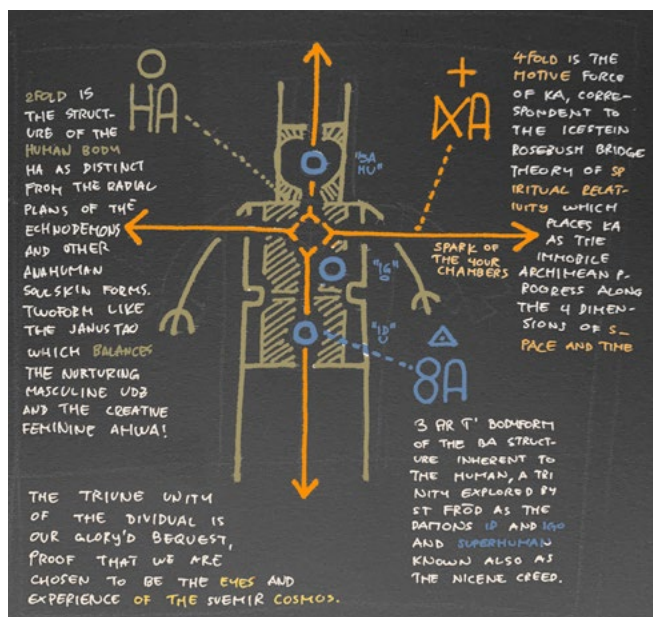 2FOLD IS
THE STRUCT-
URE OF THE
HUMAN BODY
HA AS DISTINCT
FROM THE RADIAL
PLANS OF THE
ECHNODEMONS
AND OTHER
ANAHUMAN
SOULSKIN FORMS.
TWOFORM LIKE
THE JANUSTAO
WHICH BALANCES
THE NURTURING
MASCULINE UDZ
AND THE CREATIVE
FEMININE AHWA!
HA
"SA
HU"
"IG
O"
"ID
U"
KA
SPARK OF
THE 4OUR
CHAMBERS
8A
4FOLD IS THE
MOTIVE FORCE
OF KA, CORRE-
SPONDENT TO
THE ICESTEIN
ROSEBUSH BRIDGE
THEORY OF SP
IRITUAL RELAT-
IVITY WHICH
PLACES KA
AS THE
IMMOBILE
ARCHIMEAN P-
ROGRESS ALONG
THE 4 DIMEN-
SIONS OF S_
PACE AND TIME
3 AR T' BODYFORM
OF THE BA STRUCT-
URE INHERENT TO
THE HUMAN, A TRI
NITY EXPLORED BY
ST FRŌD AS THE
DAMONS ID AND IGO
AND SUPERHUMAN
KNOWN ALSO AS
THE NICENE CREED.
THE TRIUNE UNITY
OF THE DIVIDUAL IS
OUR GLORY'D BEQUEST,
PROOF THAT WE ARE
CHOSEN TO BE THE EYES AND
EXPERIENCE OF THE SVEMIR COSMOS.